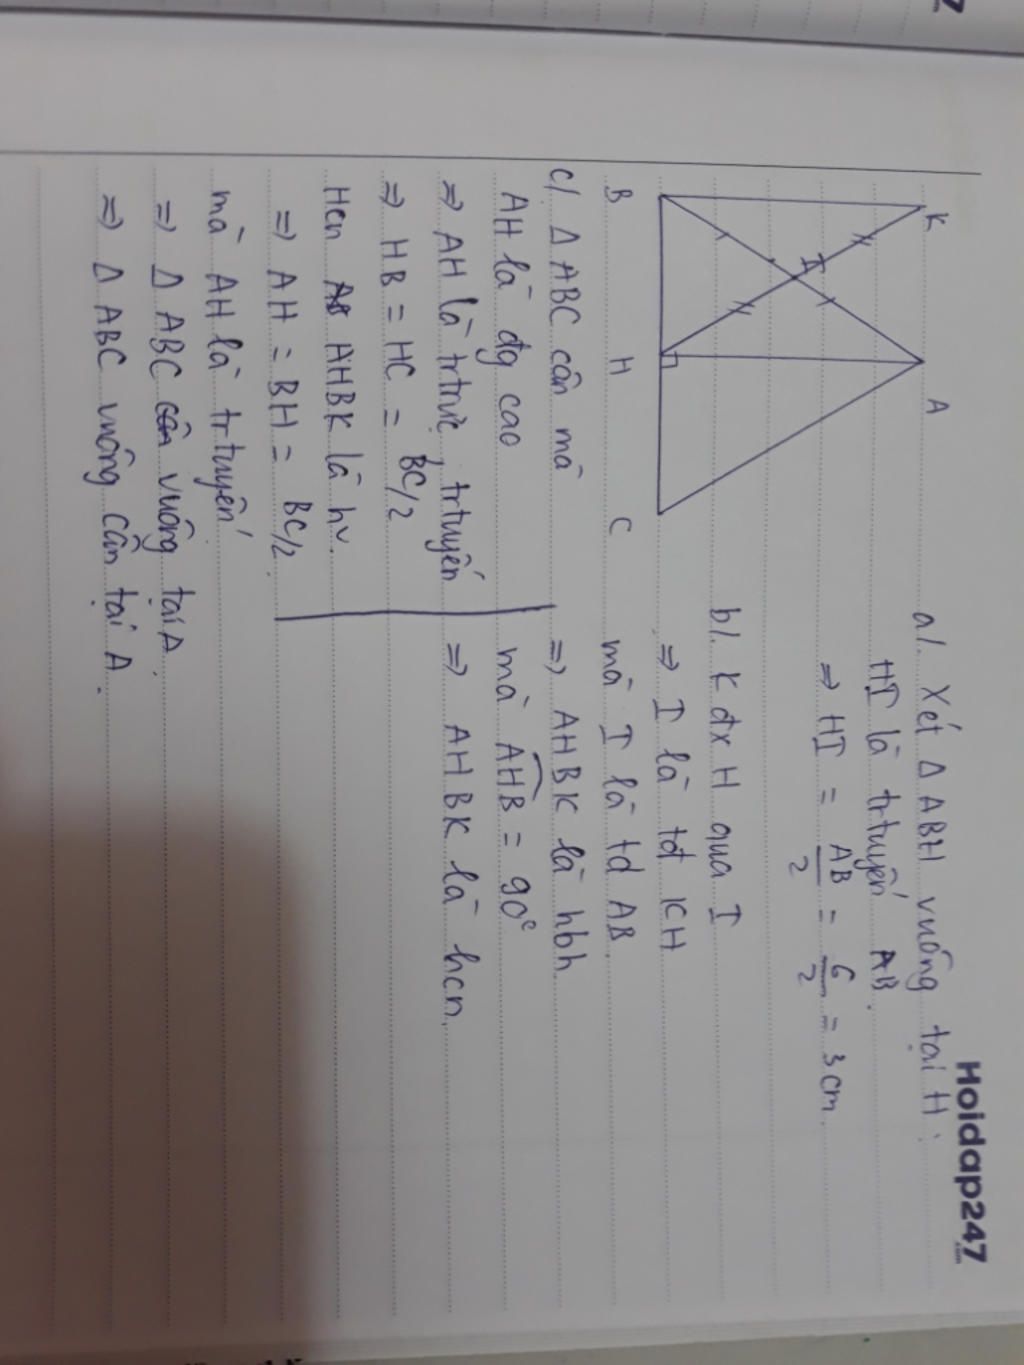 Hoidap247
.com
K
A
I
B
H
C
a/. Xét Δ ABH vuông tại H:
HI là trtuyến AB.
=> HI = AB/2 = 6/2 = 3cm.
b/. K đx H qua I
=> I là tđ KH
mà I là tđ AB.
=> AHBK là hbh.
mà AHB = 90°
=> AHBK là hcn.
c/. Δ ABC cân mà
AH là đg cao
=> AH là trtrực, trtuyến
=> HB = HC = BC/2
Hcn AHBK là hv.
=> AH = BH = BC/2.
mà AH là trtuyến.
=> Δ ABC vuông tại A.
=> Δ ABC vuông cân tại A.